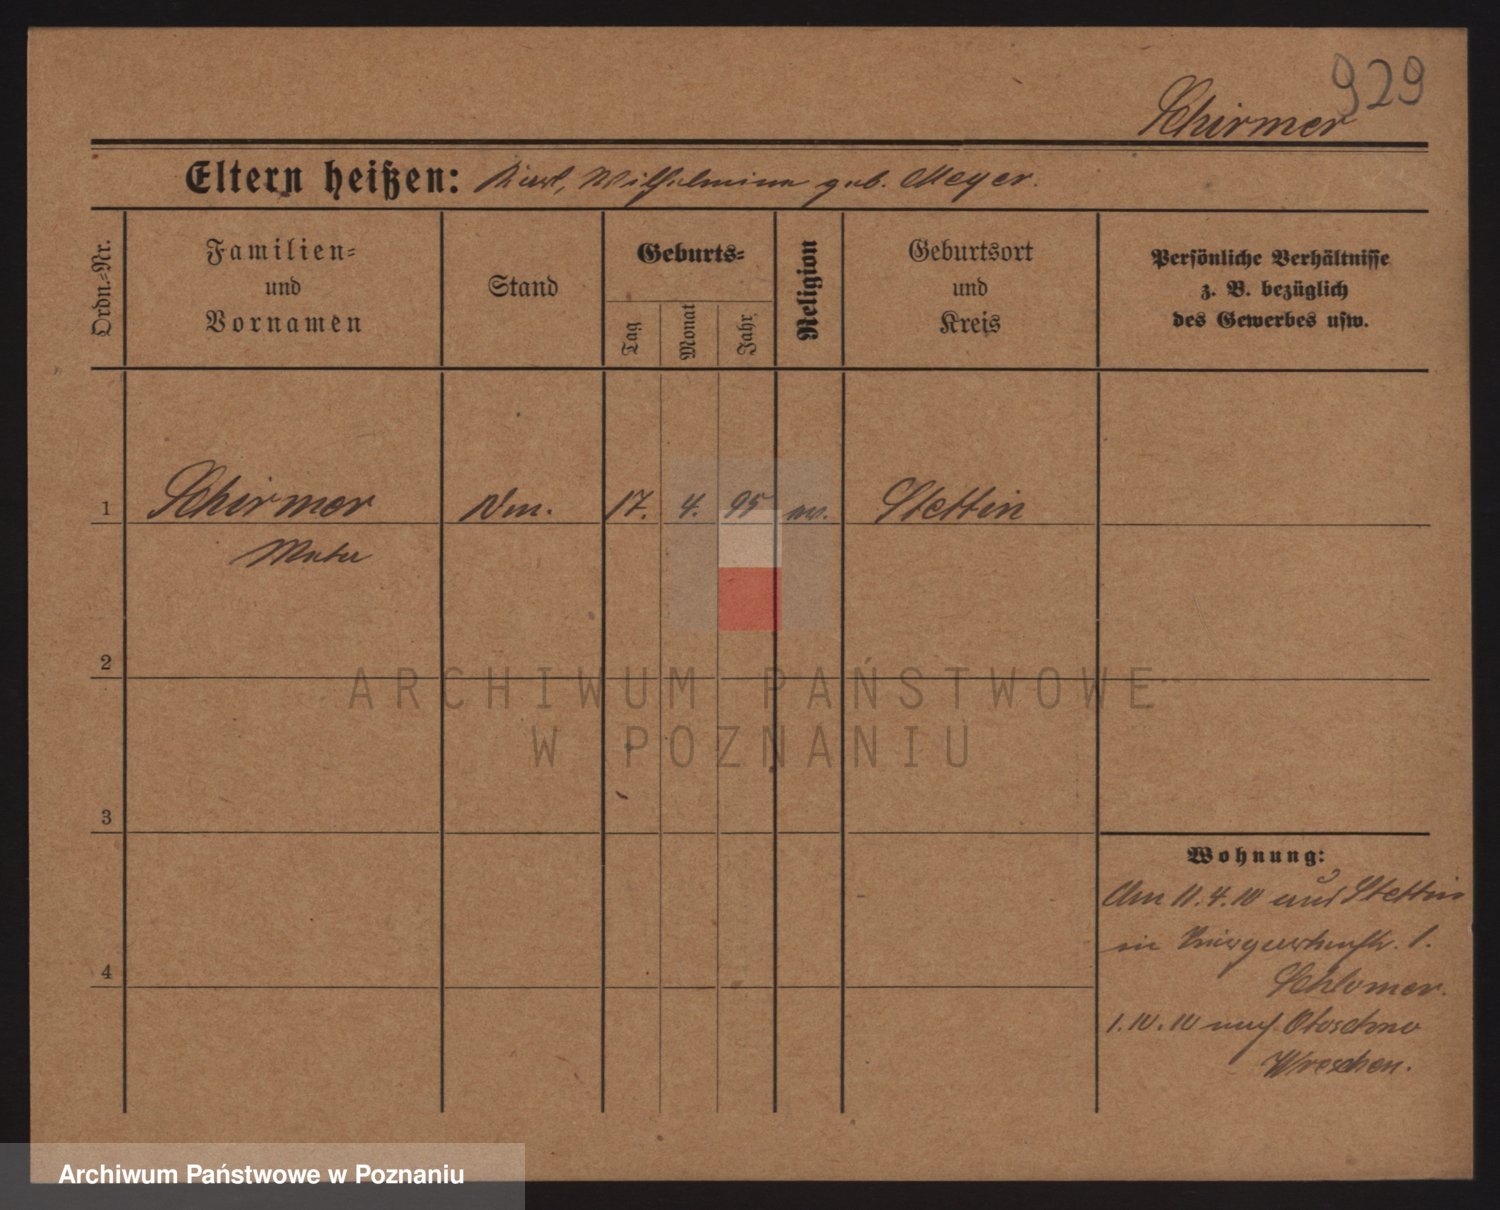 929
Schirmer
Eltern heißen: Kurt, Wilhelmine geb. Meyer.
Ordn.-Nr.
Familien-
und
Vornamen
Stand
Geburts-
Tag
Monat
Jahr
Religion
Geburtsort
und
Kreis
Persönliche Verhältnisse
z. B. bezüglich
des Gewerbes usw.
1 Schirmer 17. 4. 95 ev. Stettin
2
ARCHIWUM PAŃSTWOWE
W POZNANIU
3
Wohnung:
Am 11.4.10 aus Stettin
in 1.
Schlomer.
4
1.10.10 nach
Wreschen.
Archiwum Państwowe w Poznaniu